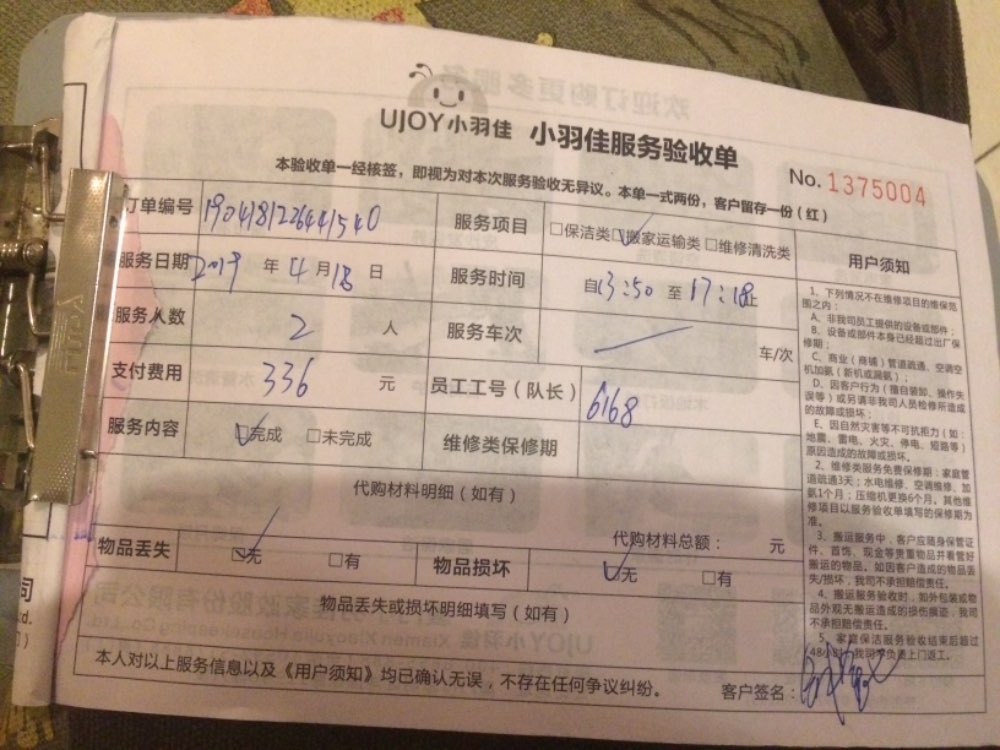 UJOY小羽佳 小羽佳服务验收单
本验收单一经核签，即视为对本次服务验收无异议。本单一式两份，客户留存一份（红）
No. 1375004
订单编号 1904181226441540 服务项目 □保洁类 ☑搬家运输类 □维修清洗类
服务日期 2019 年 4 月 18 日 服务时间 自13:50 至 17:18止
服务人数 2 人 服务车次 车/次
支付费用 336 元 员工工号（队长） 6168
服务内容 ☑完成 □未完成 维修类保修期
代购材料明细（如有）
代购材料总额： 元
物品丢失 ☑无 □有 物品损坏 ☑无 □有
物品丢失或损坏明细填写（如有）
本人对以上服务信息以及《用户须知》均已确认无误，不存在任何争议纠纷。 客户签名：
用户须知
1、下列情况不在维修项目的维保范
围之内：
A、非我司员工提供的设备或部件；
B、设备或部件本身已经超过出厂保
修期；
C、商业（商铺）管道疏通、空调空
机加氨（新机或漏氨）；
D、因客户行为（擅自装卸、操作失
误等）或另请非我司人员检修所造成
的故障或损坏；
E、因自然灾害等不可抗拒力（如：
地震、雷电、火灾、停电、短路等）
原因造成的故障或损坏。
2、维修类服务免费保修期：家庭管
道疏通3天；水电维修、空调维修、加
氨1个月；压缩机更换6个月。其他维
修项目以服务验收单填写的保修期为
准。
3、搬运服务中，客户应随身保管证
件、首饰、现金等贵重物品并看管好
搬运的物品。如因客户造成的物品丢
失/损坏，我司不承担赔偿责任。
4、搬运服务验收时，如外包装或物
品外观无搬运造成的损伤痕迹，我司
不承担赔偿责任。
5、家庭保洁服务验收结束后超过
48小时，我司不负责上门返工。